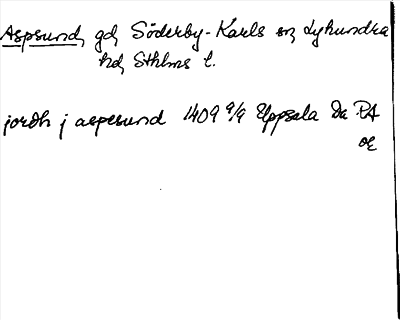 Aspsund, gd, Söderby-Karls sn, Lyhundra
hd, Sthlms l.
jordh j aspesund 1409 9/9 Uppsala Da RA